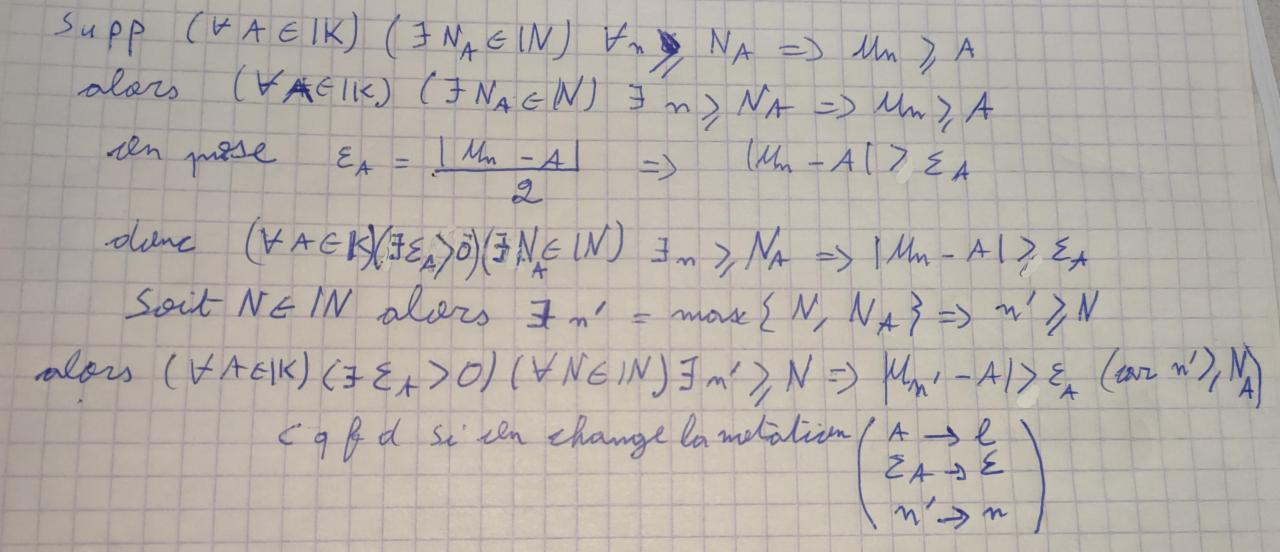 Supp (∀ A ∈ IK) (∃ N_A ∈ IN) ∀n ≥ N_A => Un ≥ A
alors (∀ A ∈ IK) (∃ N_A ∈ IN) ∃ n ≥ N_A => Un ≥ A
on pose ε_A = |Un - A| / 2 => |Un - A| > ε_A
donc (∀ A ∈ IK)(∃ ε_A > 0)(∃ N_A ∈ IN) ∃ n ≥ N_A => |Un - A| ≥ ε_A
Soit N ∈ IN alors ∃ n' = max{N, N_A} => n' ≥ N
alors (∀ A ∈ IK) (∃ ε_A > 0) (∀ N ∈ IN) ∃ n' ≥ N => |Un' - A| > ε_A (car n' ≥ N_A)
c q f d si on change la notation ( A → l
ε_A → ε
n' → n )